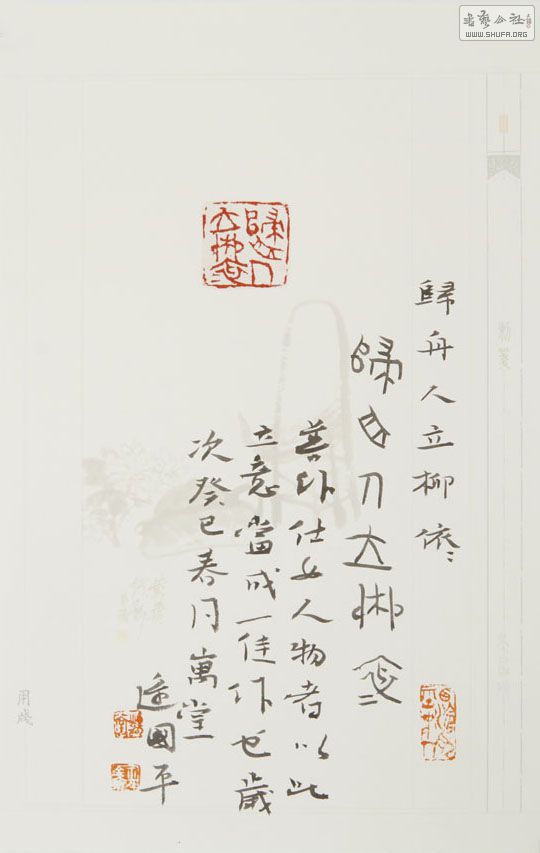 歸舟人立柳依〻
歸舟人立柳依〻
善作仕女人物者以此
立意當成一佳作也歲
次癸巳春月萬堂
國平
用牋
書藝公社
WWW.SHUFA.ORG